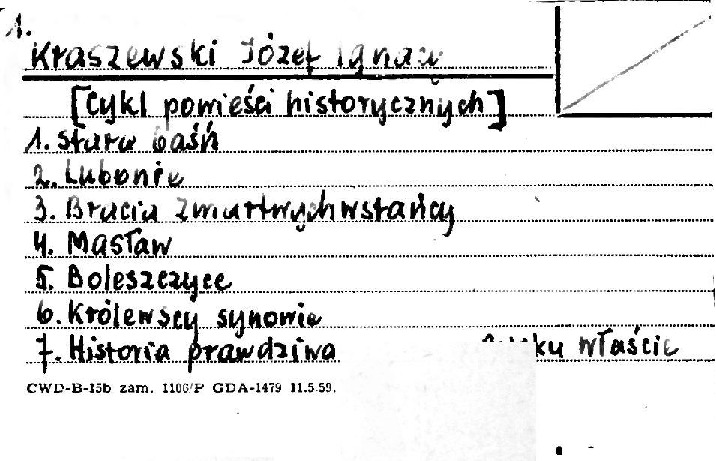 1.
Kraszewski Józef Ignacy
[Cykl powieści historycznych]
1. Stara baśń
2. Lubonie
3. Bracia Zmartwychwstańcy
4. Masław
5. Boleszczyce
6. Królewscy synowie
7. Historia prawdziwa właście
CWD-B-15b zam. 1106/P GDA-1479 11.5.59.